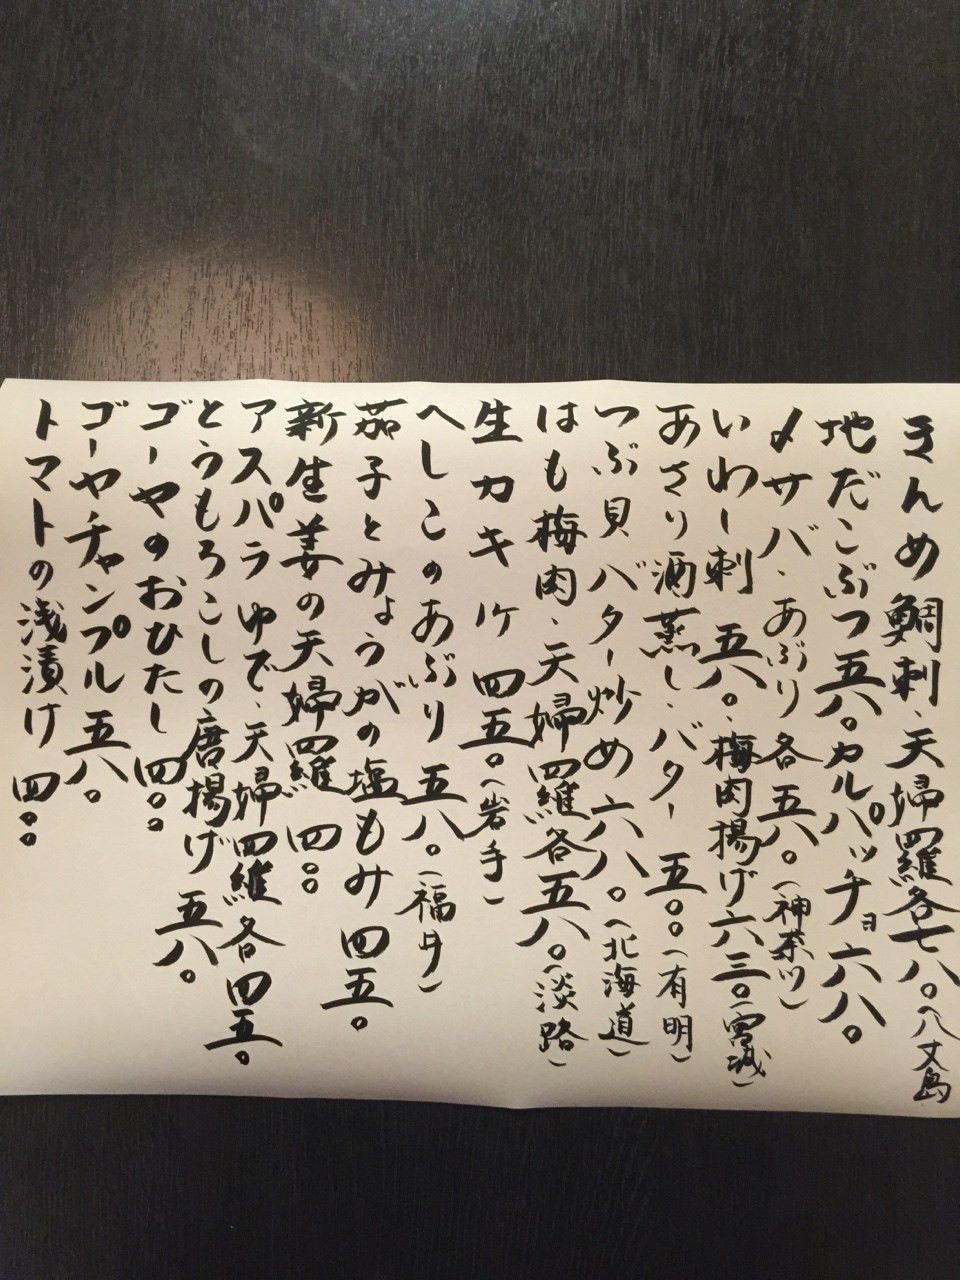 きんめ鯛刺、天婦羅各七八〇(八丈島
地だこぶつ五八〇カルパッチョ六八〇
〆サバ、あぶり各五八〇(神奈川)
いわし刺五八〇、梅肉揚げ六三〇(宮城)
あさり酒蒸し、バター五〇〇(有明)
つぶ貝バター炒め六八〇(北海道)
はも梅肉、天婦羅各五八〇(淡路)
生カキ 1ケ 四五〇(岩手)
へしこのあぶり五八〇(福井)
茄子とみょうがの塩もみ四五〇
新生姜の天婦羅四〇〇
アスパラゆで、天婦羅各四五〇
とうもろこしの唐揚げ五八〇
ゴーヤのおひたし四〇〇
ゴーヤチャンプル五八〇
トマトの浅漬け四〇〇